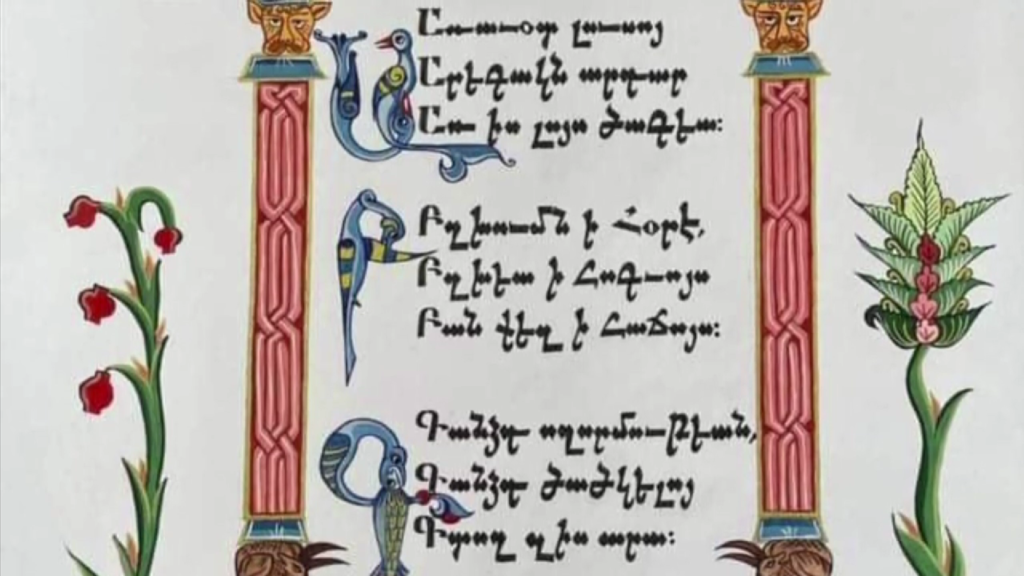 Ա
Առաւօտ լուսոյ
Արեգակն արդար
Առ իս լոյս ծագեա։
Բ
Բղխումն ի Հօրէ,
Բղխեա ի Հոգւոյս
Բան քեզ ի Հաճոյս։
Գ
Գանձդ ողորմութեան,
Գանձդ ծածկելոյ
Գտող զիս արա։